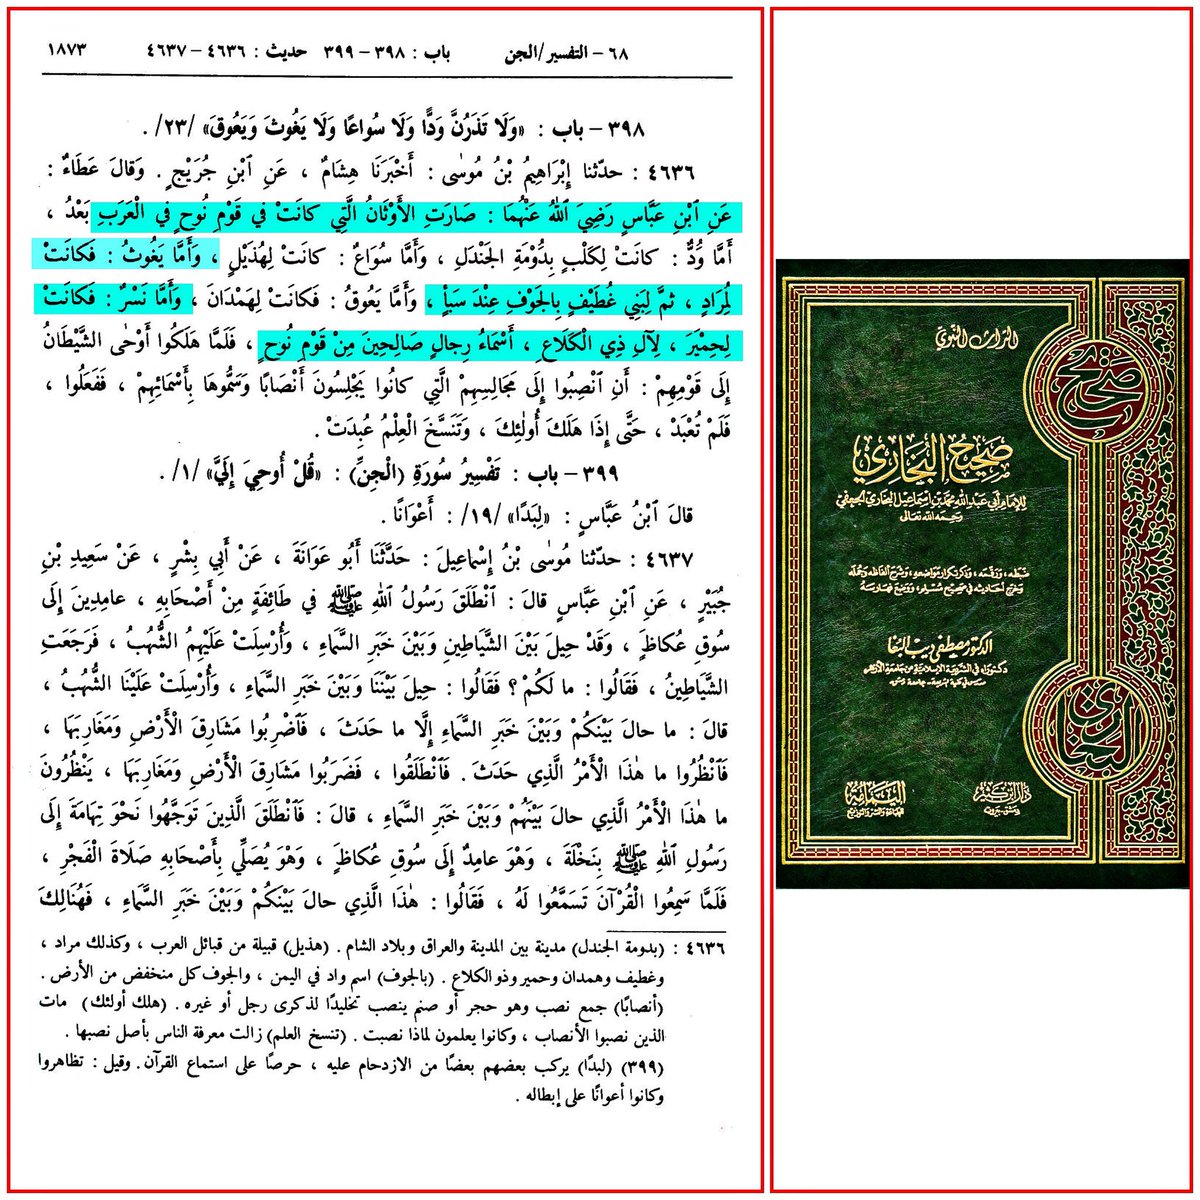 ٦٨ – التفسير/الجن باب : ٣٩٨ – ٣٩٩ حديث : ٤٦٣٦ – ٤٦٣٧ ١٨٧٣
٣٩٨ – باب : «وَلَا تَذَرُنَّ وَدًّا وَلَا سُوَاعًا وَلَا يَغُوثَ وَيَعُوقَ» /٢٣/ .
٤٦٣٦ : حدّثنا إِبْرَاهِيمُ بْنُ مُوسٰى : أَخْبَرَنَا هِشَامٌ ، عَنِ ٱبْنِ جُرَيْجٍ . وَقالَ عَطَاءٌ :
عَنِ ٱبْنِ عَبَّاسٍ رَضِيَ ٱللهُ عَنْهُمَا : صَارَتِ الأَوْثَانُ الَّتِي كانَتْ في قَوْمِ نُوحٍ في الْعَرَبِ بَعْدُ ،
أَمَّا وُدٌّ : كانَتْ لِكَلْبٍ بِدُومَةِ الجَنْدَلِ ، وَأَمَّا سُوَاعٌ : كانَتْ لِهُذَيْلٍ ، وَأَمَّا يَغُوثُ : فَكانَتْ
لِمُرَادٍ ، ثمَّ لِبَنِي غُطَيْفٍ بِالجَوْفِ عِنْدَ سَبَأٍ ، وَأَمَّا يَعُوقُ : فَكانَتْ لِهَمْدَانَ ، وَأَمَّا نَسْرٌ : فَكانَتْ
لِحِمْيَرَ ، لِآلِ ذِي الْكَلَاعِ ، أَسْمَاءُ رِجالٍ صَالِحِينَ مِنْ قَوْمِ نُوحٍ ، فَلَمَّا هَلَكُوا أَوْحٰى الشَّيْطَانُ
إِلَى قَوْمِهِمْ : أَنِ ٱنْصِبُوا إِلَى مَجَالِسِهِمْ الَّتِي كانُوا يَجْلِسُونَ أَنْصَابًا وَسَمُّوهَا بِأَسْمَائِهِمْ ، فَفَعَلُوا ،
فَلَمْ تُعْبَدْ ، حَتَّى إِذَا هَلَكَ أُولٰئِكَ ، وَتَنَسَّخَ الْعِلْمُ عُبِدَتْ .
٣٩٩ – باب : تَفْسِيرُ سُورَةِ (الْجِنِّ) : «قُلْ أُوحِيَ إِلَيَّ» /١/ .
قالَ ٱبْنُ عَبَّاسٍ : «لِبَدًا» /١٩/ : أَعْوَانًا .
٤٦٣٧ : حدّثنا مُوسٰى بْنُ إِسْماعِيلَ : حَدَّثَنَا أَبُو عَوَانَةَ ، عَنْ أَبِي بِشْرٍ ، عَنْ سَعِيدِ بْنِ
جُبَيْرٍ ، عَنِ ٱبْنِ عَبَّاسٍ قالَ : ٱنْطَلَقَ رَسُولُ ٱللهِ ﷺ في طَائِفَةٍ مِنْ أَصْحَابِهِ ، عامِدِينَ إِلَى
سُوقِ عُكاظٍ ، وَقَدْ حِيلَ بَيْنَ الشَّيَاطِينِ وَبَيْنَ خَبَرِ السَّمَاءِ ، وَأُرْسِلَتْ عَلَيْهِمُ الشُّهُبُ ، فَرَجَعَتِ
الشَّيَاطِينُ ، فَقَالُوا : ما لَكُمْ ؟ فَقَالُوا : حِيلَ بَيْنَنَا وَبَيْنَ خَبَرِ السَّمَاءِ ، وَأُرْسِلَتْ عَلَيْنَا الشُّهُبُ ،
قالَ : ما حالَ بَيْنَكُمْ وَبَيْنَ خَبَرِ السَّمَاءِ إِلَّا ما حَدَثَ ، فَٱضْرِبُوا مَشَارِقَ الْأَرْضِ وَمَغَارِبَهَا ،
فَٱنْظُرُوا ما هٰذَا الْأَمْرُ الَّذِي حَدَثَ . فَٱنْطَلَقُوا ، فَضَرَبُوا مَشَارِقَ الْأَرْضِ وَمَغَارِبَهَا ، يَنْظُرُونَ
ما هٰذَا الْأَمْرُ الَّذِي حالَ بَيْنَهُمْ وَبَيْنَ خَبَرِ السَّمَاءِ ، قالَ : فَٱنْطَلَقَ الَّذِينَ تَوَجَّهُوا نَحْوَ تِهَامَةَ إِلَى
رَسُولِ ٱللهِ ﷺ بِنَخْلَةَ ، وَهْوَ عامِدٌ إِلَى سُوقِ عُكاظٍ ، وَهْوَ يُصَلِّي بِأَصْحَابِهِ صَلَاةَ الْفَجْرِ ،
فَلَمَّا سَمِعُوا الْقُرْآنَ تَسَمَّعُوا لَهُ ، فَقَالُوا : هٰذَا الَّذِي حالَ بَيْنَكُمْ وَبَيْنَ خَبَرِ السَّمَاءِ ، فَهُنَالِكَ
٤٦٣٦ : (بدومة الجندل) مدينة بين المدينة والعراق وبلاد الشام . (هذيل) قبيلة من قبائل العرب ، وكذلك مراد ،
وغطيف وهمدان وحمير وذو الكلاع . (بالجوف) اسم واد في اليمن ، والجوف كل منخفض من الأرض .
(أنصابًا) جمع نصب وهو حجر أو صنم ينصب تخليدًا لذكرى رجل أو غيره . (هلك أولئك) مات
الذين نصبوا الأنصاب ، وكانوا يعلمون لماذا نصبت . (تنسخ العلم) زالت معرفة الناس بأصل نصبها .
(٣٩٩) (لبدًا) يركب بعضهم بعضًا من الازدحام عليه ، حرصًا على استماع القرآن . وقيل : تظاهروا
وكانوا أعوانًا على إبطاله .
التراث النبوي
صحيح
صحيح البخاري
للإمام أبي عبد الله محمد بن إسماعيل البخاري الجعفي
رحمه الله تعالى
ضبطه ، ورقمه ، وذكر تكرار مواضعه ، وشرح ألفاظه وجمله
وخرج أحاديثه في صحيح مسلم ، ووضع فهارسه
الدكتور مصطفى ديب البغا
دكتوراه في الشريعة الإسلامية من جامعة الأزهر
البخاري
دار ابن كثير
دمشق - بيروت
اليمامة
للطباعة والنشر والتوزيع